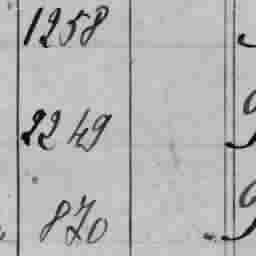 1258
2249
870